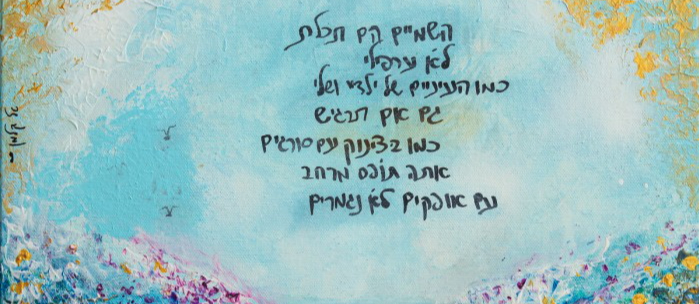 השמיים הם תכלת
לא ערפילי
כמו העיניים של ילדיי ושלי
גם אם תרגיש
כמו בצינוק עם סורגים
אתה תופס מרחב
עם אופקים לא נגמרים